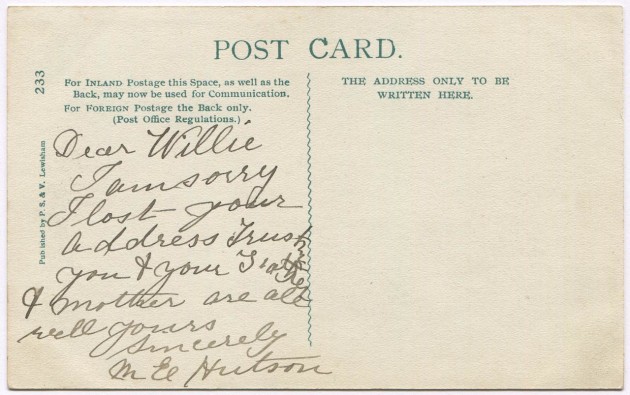 POST CARD.
233
For INLAND Postage this Space, as well as the
Back, may now be used for Communication.
For FOREIGN Postage the Back only.
(Post Office Regulations.)
THE ADDRESS ONLY TO BE
WRITTEN HERE.
Published by P. S. & V. Lewisham
Dear Willie
I am sorry
I lost your
address Trust
you & your
& mother are all
well yours
sincerely
M Hutson